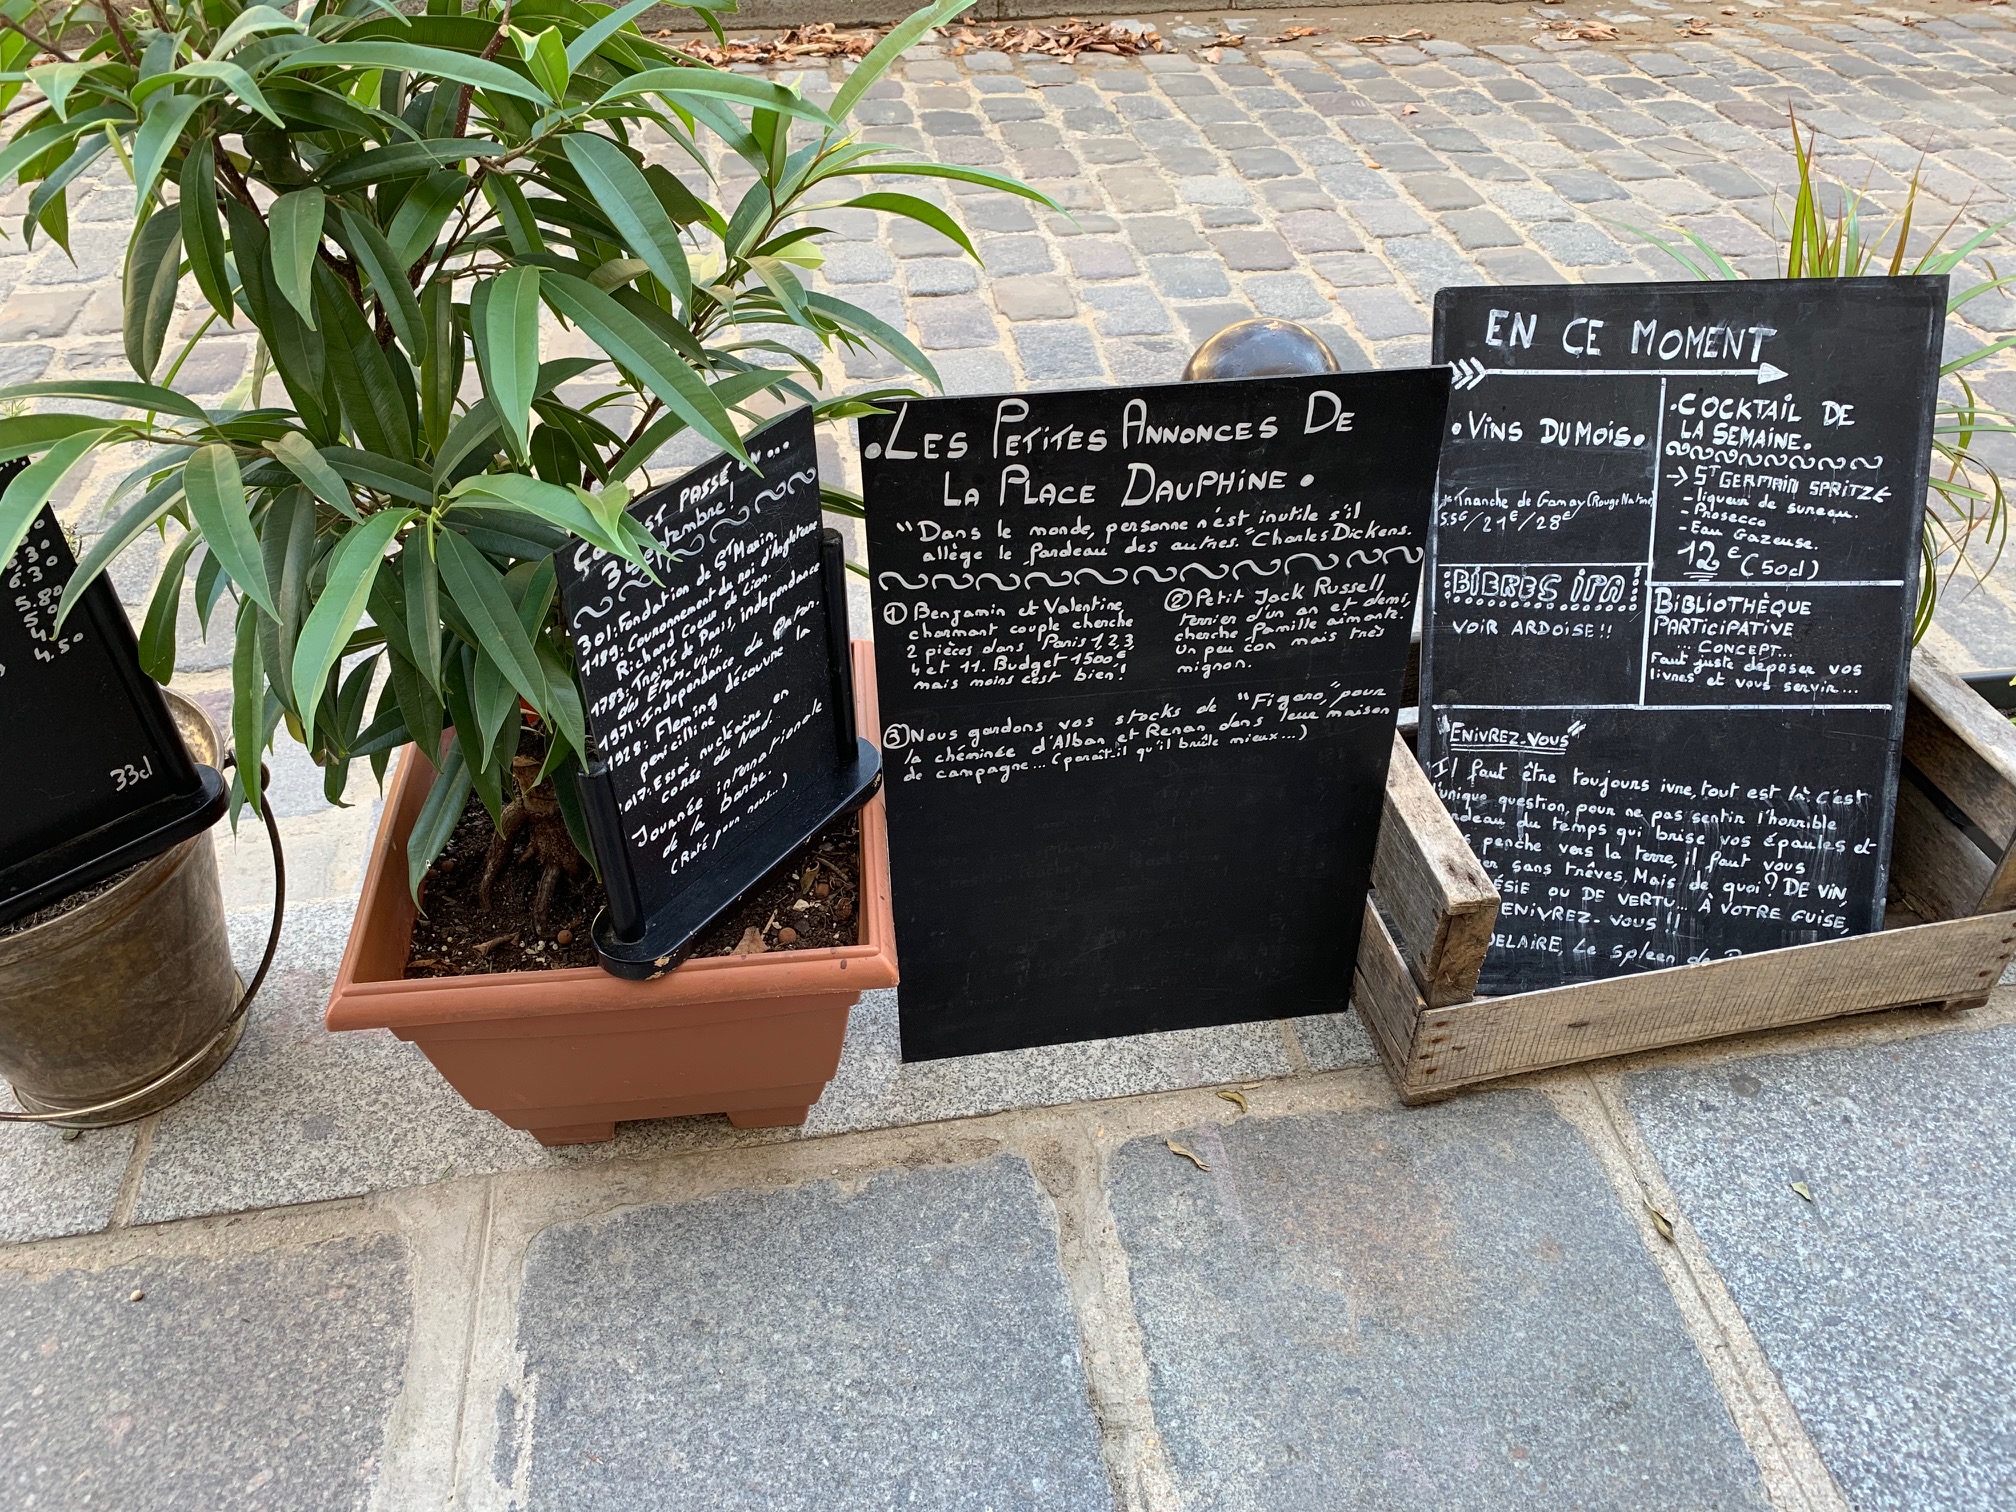 .30
6.30
5.80
5.5
4.50
33cl
EST PASSÉ UN...
3 Septembre!
301: Fondation de ST Marin.
1189: Couronnement du roi d'Angleterre
Richard Coeur de Lion.
1783: Traité de Paris, indépendance
des États. Unis.
1971: Indépendance du Qatar.
1928: Fleming découvre la
penicilline
2017: Essai nucléaire en
corée du Nord.
Journée internationale
de la barbe.
(Raté pour nous...)
.LES PETITES ANNONCES DE
LA PLACE DAUPHINE.
"Dans le monde, personne n'est inutile s'il
allège le fardeau des autres." Charles Dickens.
① Benjamin et Valentine,
charmant couple cherche
2 pièces dans Paris 1, 2, 3,
4 et 11. Budget 1500€
mais moins c'est bien!
② Petit Jack Russell
terrier d'un an et demi,
cherche famille aimante.
Un peu con mais très
mignon.
③ Nous gardons vos stocks de "Figaro," pour
la chéminée d'Alban et Renan dans leur maison
de campagne... (paraît-il qu'il brûle mieux...)
EN CE MOMENT
.VINS DU MOIS.
Tranche de Gamay (Rouge Nature)
5.5€/21€/28€
BIÈRES IPA
VOIR ARDOISE!!
.COCKTAIL DE
LA SEMAINE.
→ ST GERMAIN SPRITZ
- liqueur de sureau.
- Prosecco
- Eau Gazeuse.
12€ (50cl)
BIBLIOTHÈQUE
PARTICIPATIVE
... CONCEPT...
Faut juste déposer vos
livres et vous servir...
"ENIVREZ-VOUS"
Il faut être toujours ivre, tout est là: C'est
l'unique question, pour ne pas sentir l'horrible
rdeau du temps qui brise vos épaules et
penche vers la terre, il faut vous
er sans trêves. Mais de quoi? DE VIN,
ÉSIE OU DE VERTU... À VOTRE GUISE,
ENIVREZ-VOUS!!
DELAIRE, Le spleen de